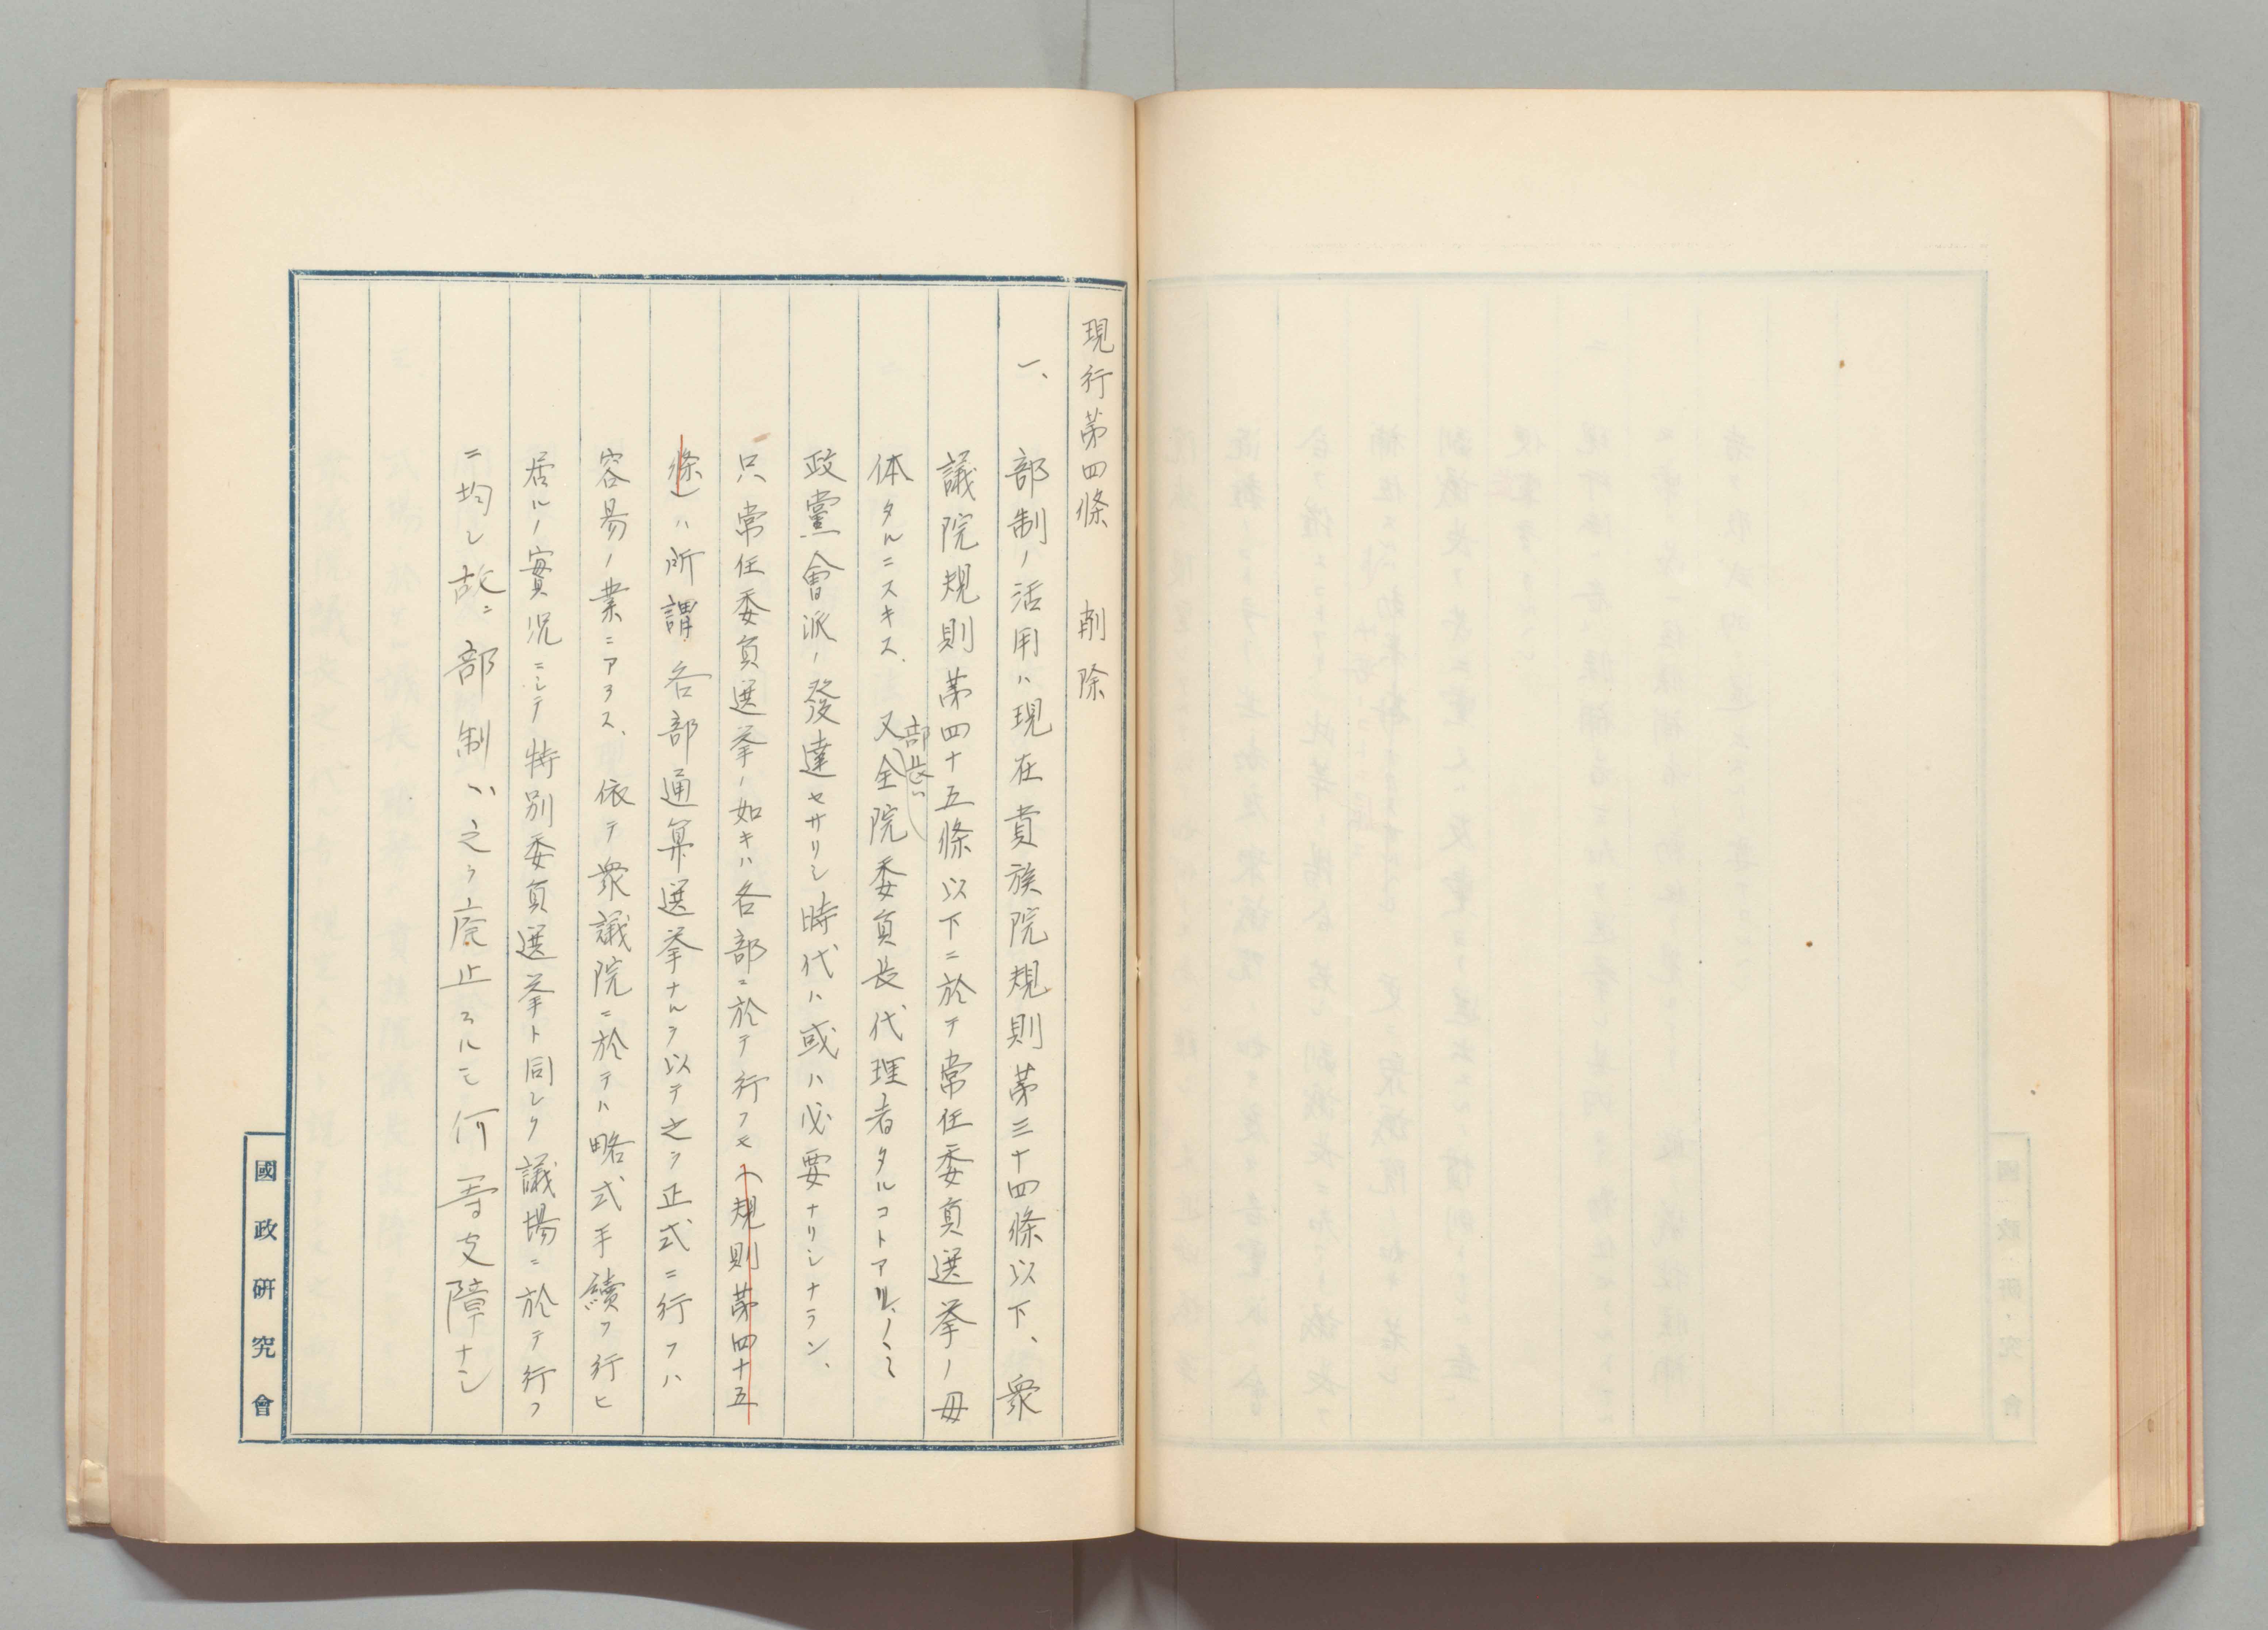 現行第四條 削除
一、部制ノ活用ハ現在貴族院規則第三十四條以下、衆
議院規則第四十五條以下ニ於テ常任委員選挙ノ母
体タルニスキス、又部長ハ全院委員長代理者タルコトアルノミ
政黨會派ノ發達セサリシ時代ハ或ハ必要ナリシナラン、
只常任委員選挙ノ如キハ各部ニ於テ行フモ(規則第四十五
條)ハ所謂各部通算選挙ナルヲ以テ之ヲ正式ニ行フハ
容易ノ業ニアラス、依テ衆議院ニ於テハ略式手續ヲ行ヒ
居ルノ實況ニシテ特別委員選挙ト同シク議場ニ於テ行フ
ニ均シ故ニ部制ハ之ヲ廃止スルモ何等支障ナシ
國政研究會